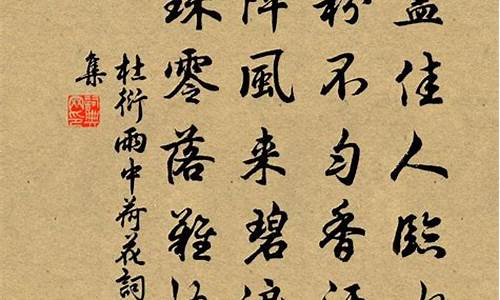 蓋佳人臨
粉不匀香汗
陣風来碧浪
珠零落難
杜衍雨中荷花詞
集